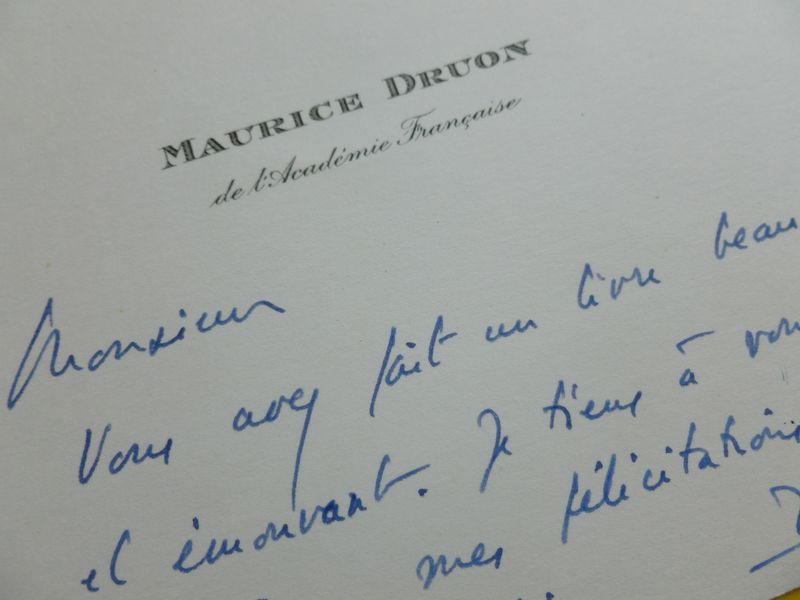 MAURICE DRUON
de l'Académie Française
Monsieur
Vous avez fait un livre beau
et émouvant. Je tiens à vous
mes félicitations